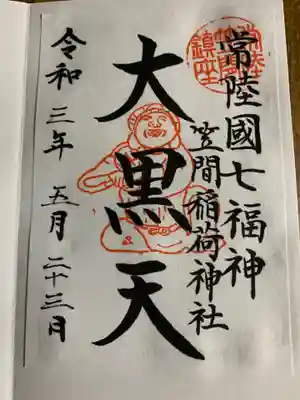 常陸國七福神
笠間稲荷神社
大黒天
令和三年五月二十三日